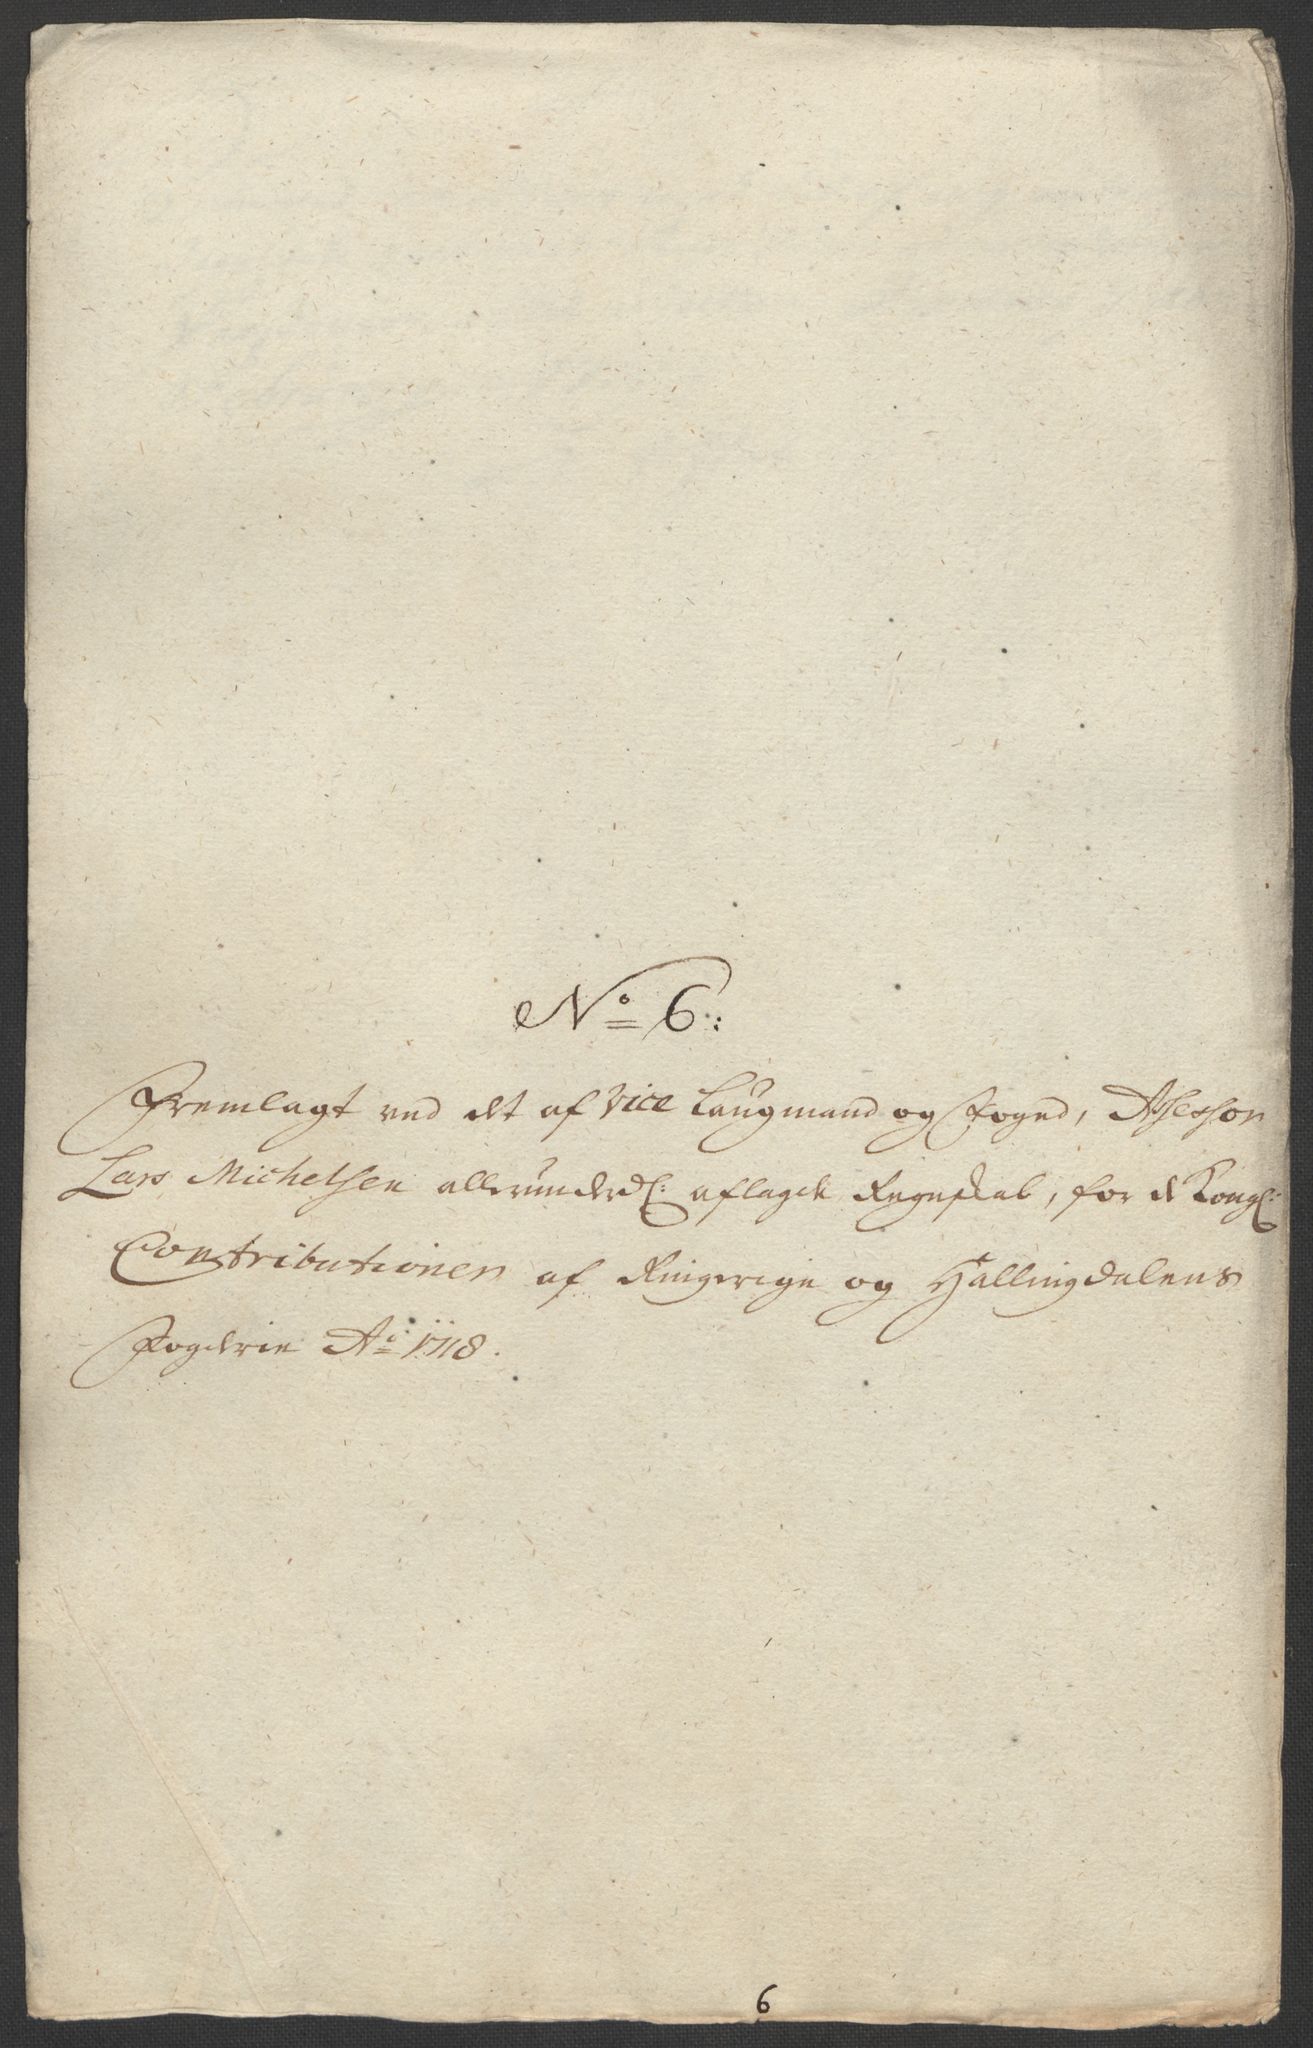 No 6:
Fremlagt ved det af Vice Laugmand og Foged, Assessor
Lars Michelsen allerunderd: aflagde Regnskab, for de Kongl:
Contributioner af Ringerige og Hallingdalens
Fogderie Ao 1718.
6